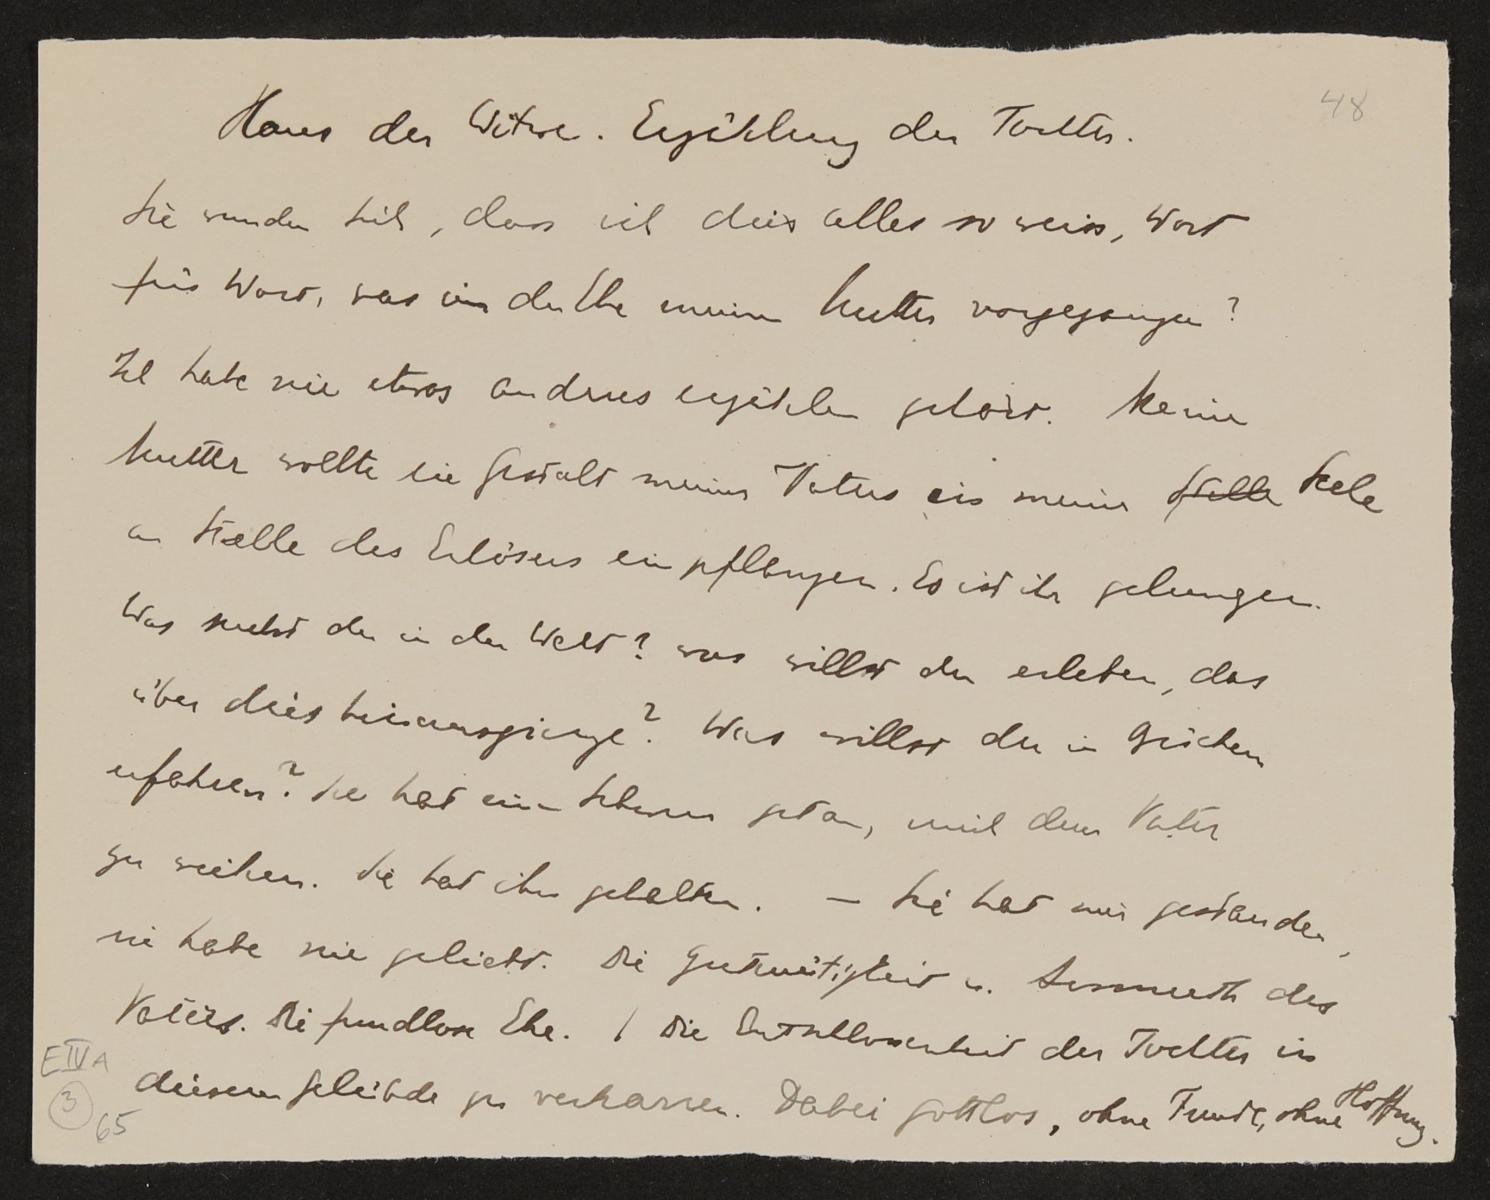 48
Haus der Witwe. Erzählung der Tochter.
Sie wundern sich, dass ich dies alles so weiss, Wort
für Wort, was in der Ehe meiner Mutter vorgegangen?
Ich habe nie etwas anderes erzählen gehört. Meine
Mutter wollte die Gestalt meines Vaters in meine Stelle Seele
an Stelle des Erlösers einpflanzen. Es ist ihr gelungen.
Was suchst du in der Welt? was willst du erleben, das
über dies hinausginge? Was willst du in Büchern
erfahren? Sie hat einen Schwur getan, nicht dem Vater
zu weichen. Sie hat ihn gehalten. – Sie hat mir gestanden,
sie habe nie geliebt. Die Gutmütigkeit u. des
Vaters. Die freudlose Ehe. / Die Entschlossenheit der Tochter in
diesem Gelübde zu verharren. Dabei gottlos, ohne Freude, ohne Hoffnung.
E IV A
3
65